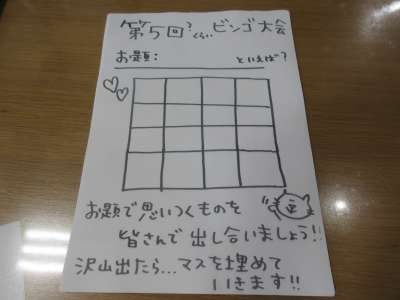 第5回? くらい ビンゴ大会
お題: といえば?
お題で思いつくものを
皆さんで出し合いましょう!!
沢山出たら...マスを埋めて
いきます!!